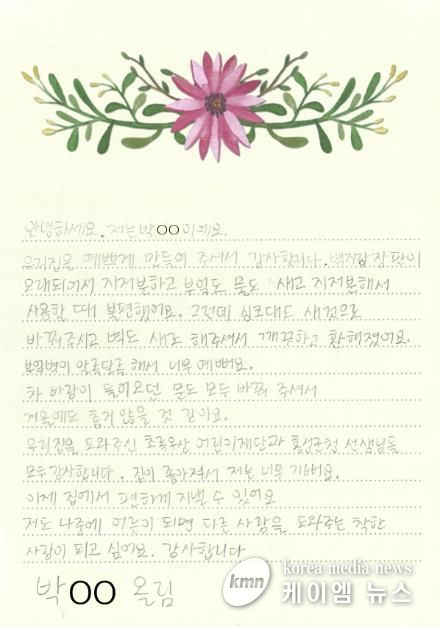 안녕하세요. 저는 박OO이에요.
우리집을 예쁘게 만들어 주셔서 감사합니다. 벽지랑 장판이
오래되어서 지저분하고 부엌도 물도 새고 지저분해서
사용할 때 불편했어요. 그런데 싱크대도 새것으로
바꿔주시고 벽도 새로 해주셔서 깨끗하고 환해졌어요.
부엌벽이 알록달록 해서 너무 예뻐요.
차 바람이 들어오던 문도 모두 바꿔 주셔서
겨울에도 춥지 않을 것 같아요.
우리집을 도와주신 초록우산 어린이재단과 홍성군청 선생님들
모두 감사합니다. 집이 좋아져서 저는 너무 기뻐요.
이제 집에서 편하게 지낼 수 있어요
저도 나중에 어른이 되면 다른 사람을 도와주는 착한
사람이 되고 싶어요. 감사합니다
박OO 올림
kmn korea media news
케이엠 뉴스